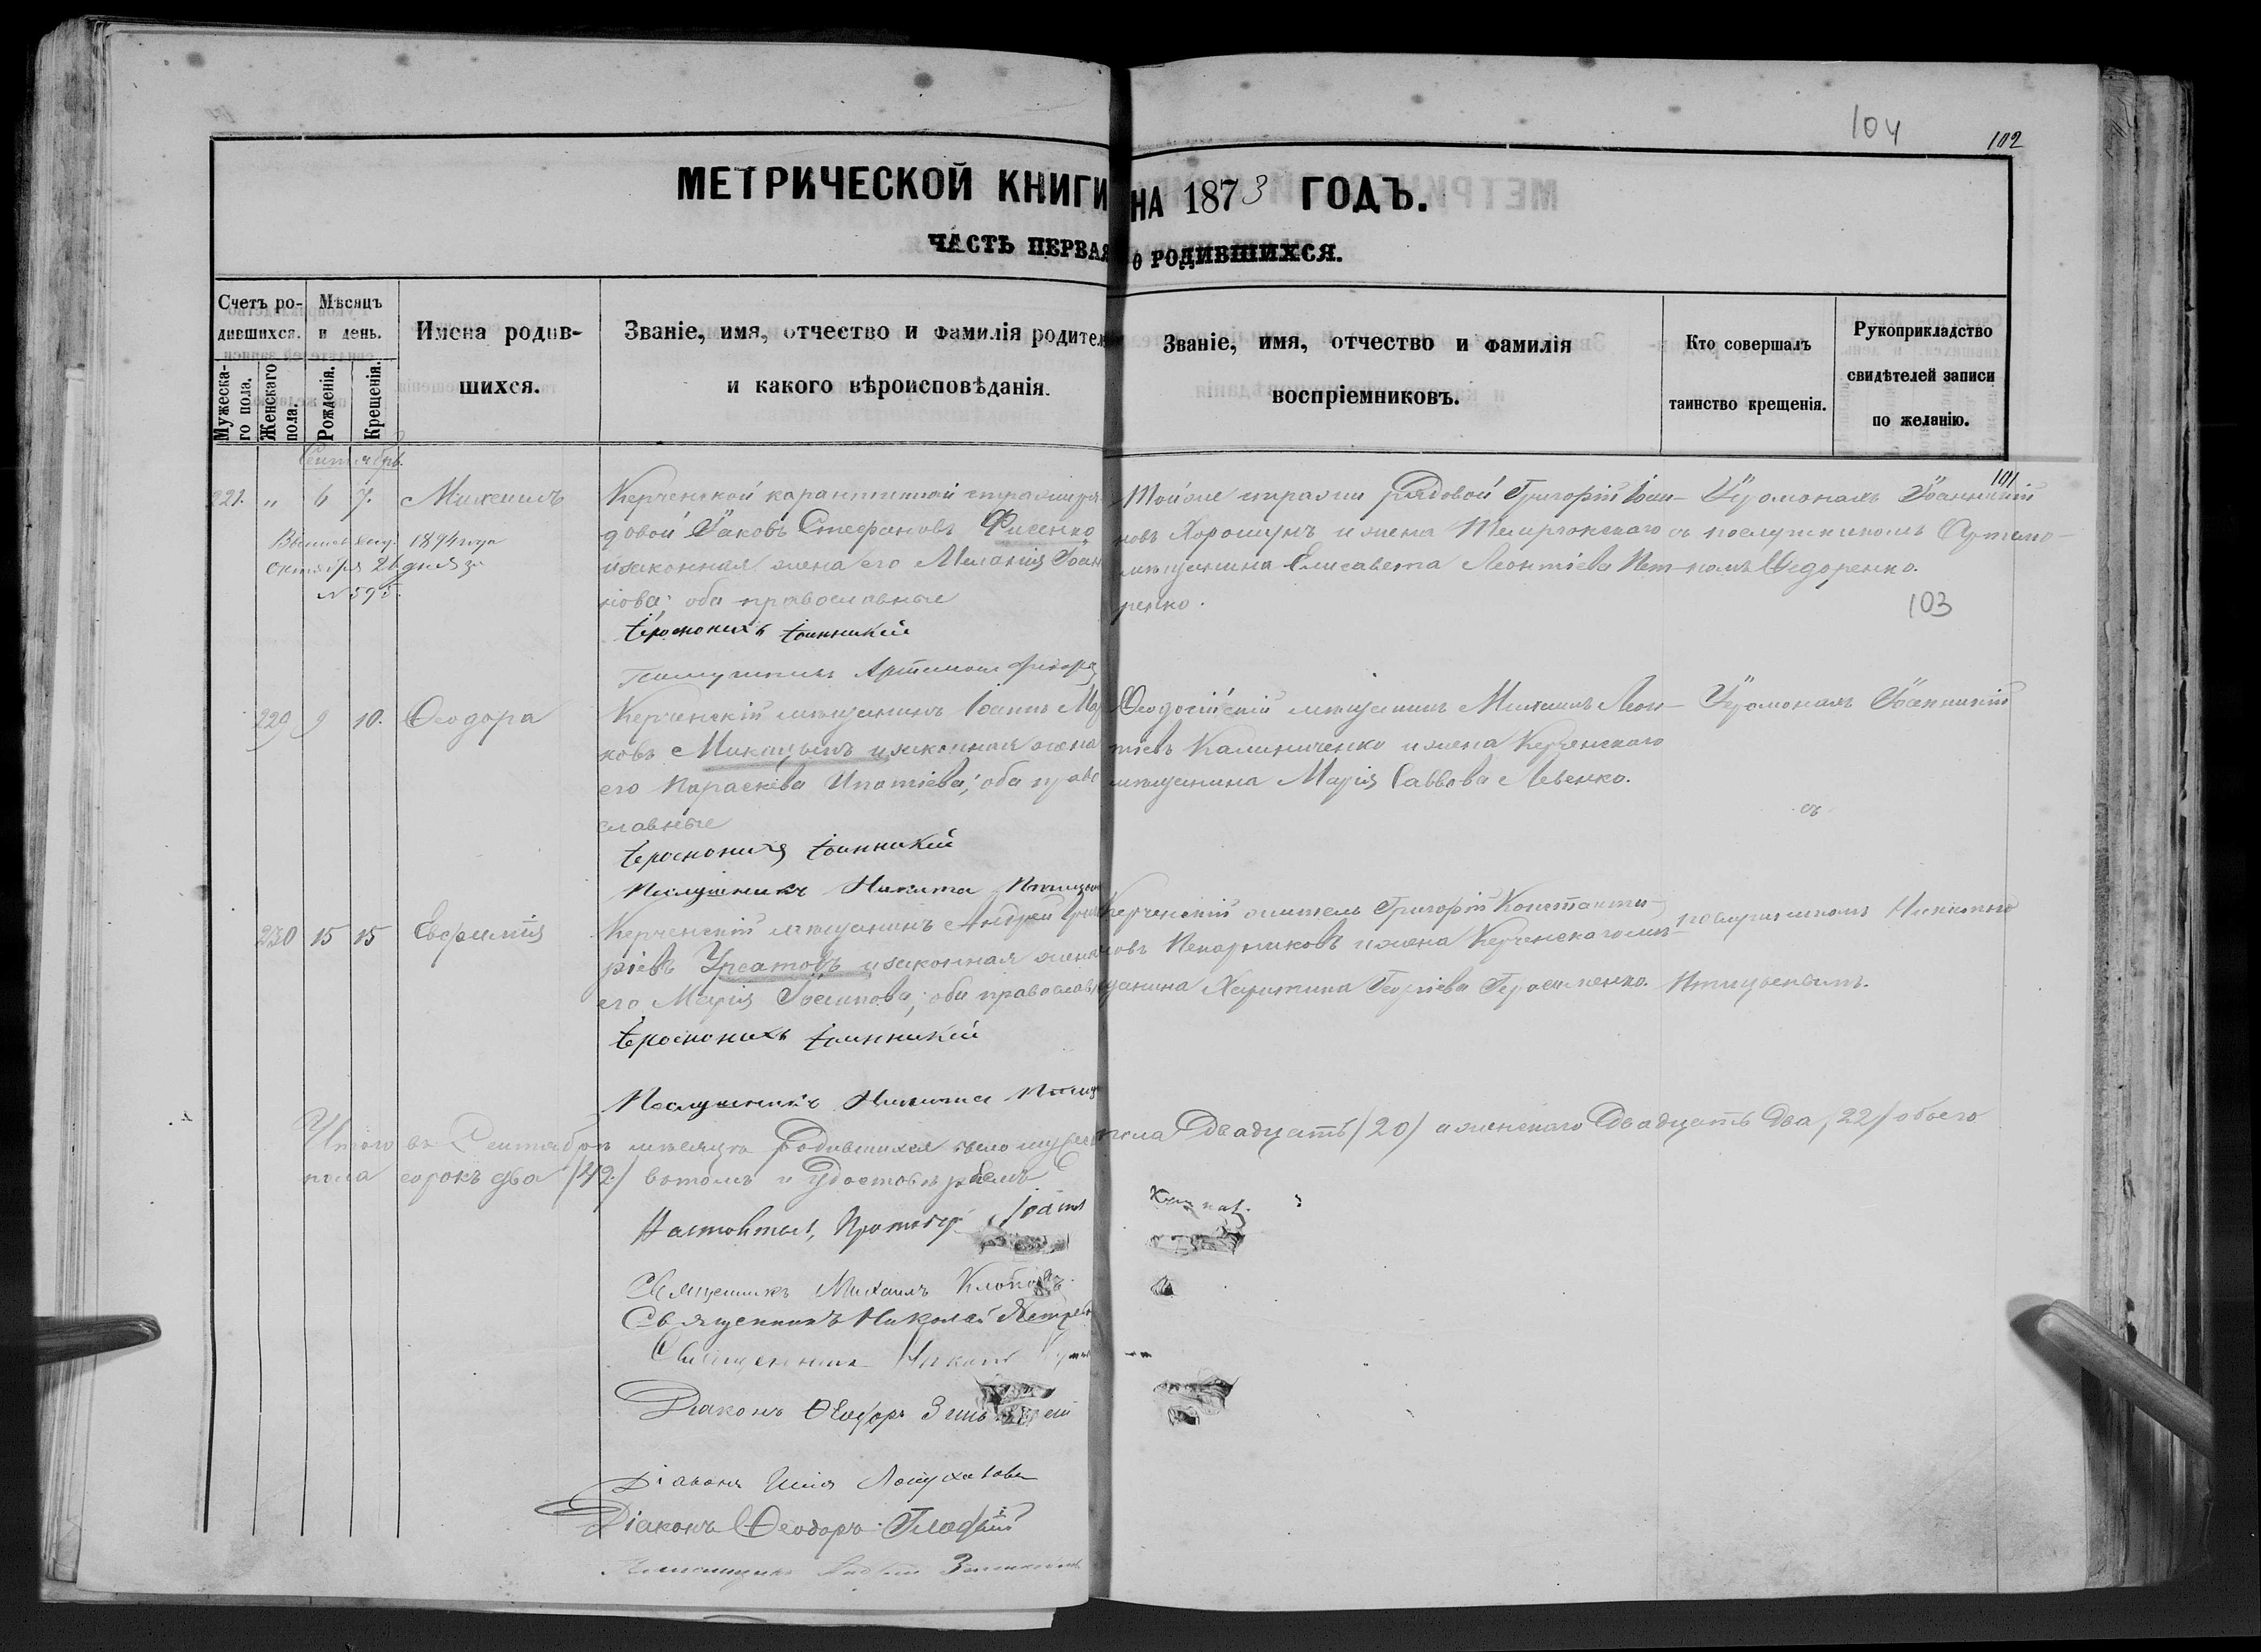 104
102
МЕТРИЧЕСКОЙ КНИГИ НА 1873 ГОДЪ.
ЧАСТЬ ПЕРВАЯ О РОДИВШИХСЯ.
Счетъ ро-
дившихся.
Мужеска-
го пола.
Женскаго
пола.
Мѣсяцъ
и день.
Рожденія.
Крещенія.
Имена родив-
шихся.
Званіе, имя, отчество и фамилія родител
и какого вѣроисповѣданія.
Званіе, имя, отчество и фамилія
воспріемниковъ.
Кто совершалъ
таинство крещенія.
Рукоприкладство
свидѣтелей записи
по желанію.
Сентябрь.
221. " 6 7. Михаилъ
1894 года
октября 26 дня за
№ 595.
Керченской карантинной стражи ря-
довой Іаковъ Стефановъ Фисенко
и законная жена его Меланія Іоан
нова; оба православные
Іеромонахъ Іоанникій
Той же стражи рядовой Григорій Іоан-
новъ Хорошунъ и жена Темрюкскаго
мѣщанина Елисавета Леонтіева Пет-
ренко.
101
Іеромонахъ Іоанникій
съ послушникомъ Артамо-
номъ Ѳедоренко.
103
229 9 10. Ѳеодора
Керченскій мѣщанинъ Іоаннъ Мар
ковъ и законная жена
его Параскева Ипатіева; оба право
славные
Іеромонахъ Іоанникій
Послушникъ Никита
Ѳеодосійскій мѣщанинъ Михаилъ Леон-
тіевъ Калиниченко и жена Керченскаго
мѣщанина Марія Саввова Левенко.
Іеромонахъ Іоанникій
съ
230 15 15 Евфимія
Керченскій мѣщанинъ Андрей Григо
ріевъ Усатовъ и законная жена
его Марія Іосипова; оба православ
Іеромонахъ Іоанникій
Послушникъ Никита
Керченскій житель Григорій Константи-
новъ Пекарниковъ и жена Керченскаго мѣ-
щанина Харитина Георгіева Герасименко.
послушникомъ Никитою
Итого въ Сентябрѣ мѣсяцѣ родившихся было мужеск пола Двадцать /20/ а женскаго Двадцать два /22/ обоего
пола сорокъ два /42/ въ томъ и удостовѣряемъ
Іоаннъ
Священникъ Михаилъ
Священникъ Николай
Священникъ
Діаконъ Ѳеодоръ
Діаконъ Илія
Діаконъ Ѳеодоръ Гладкій